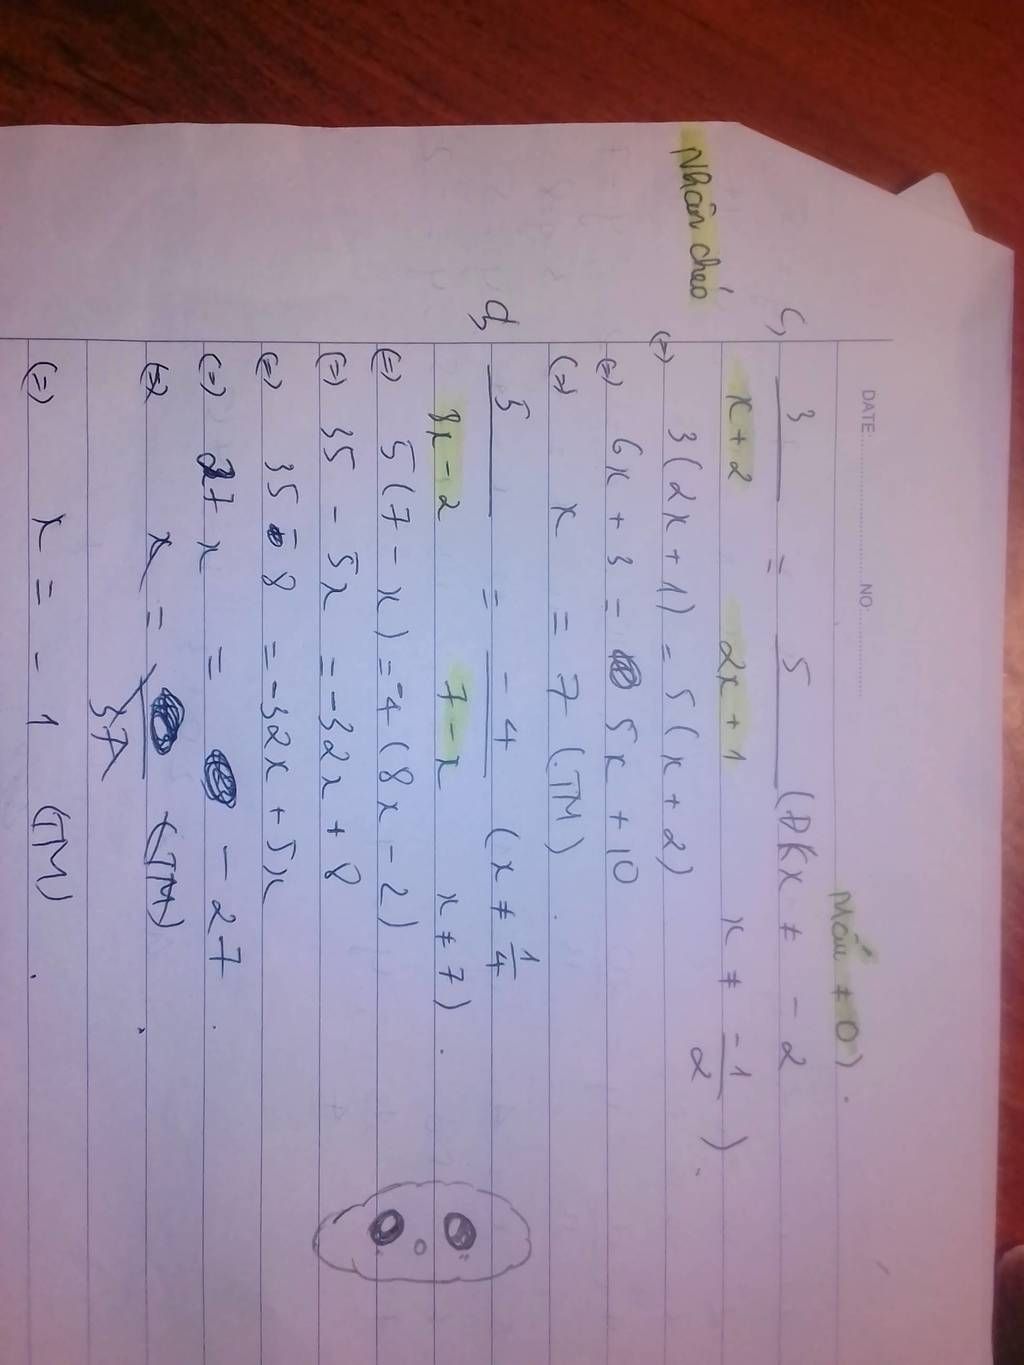 DATE: NO:
Mẫu ≠ 0).
c, 3/(x + 2) = 5/(2x + 1) (ĐK x ≠ - 2
x ≠ -1/2).
Nhân chéo
(=) 3(2x + 1) = 5(x + 2)
(=) 6x + 3 = 5x + 10
(=) x = 7 (TM)
d, 5/(8x - 2) = -4/(7 - x) (x ≠ 1/4
x ≠ 7).
(=) 5(7 - x) = -4(8x - 2)
(=) 35 - 5x = -32x + 8
(=) 35 - 8 = -32x + 5x
(=) 27x = - 27.
(=) x = (TM).
37
(=) x = - 1 (TM).